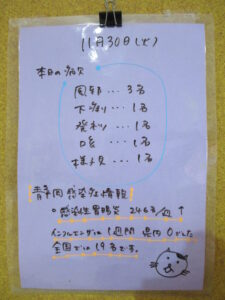 11月30日(火)
本日の病欠
風邪…3名
下痢…1名
発熱…1名
咳…1名
様子見…1名
静岡感染症情報
○感染性胃腸炎 246名/週 ↑
インフルエンザは1週間 県内0でした
全国では19名です。